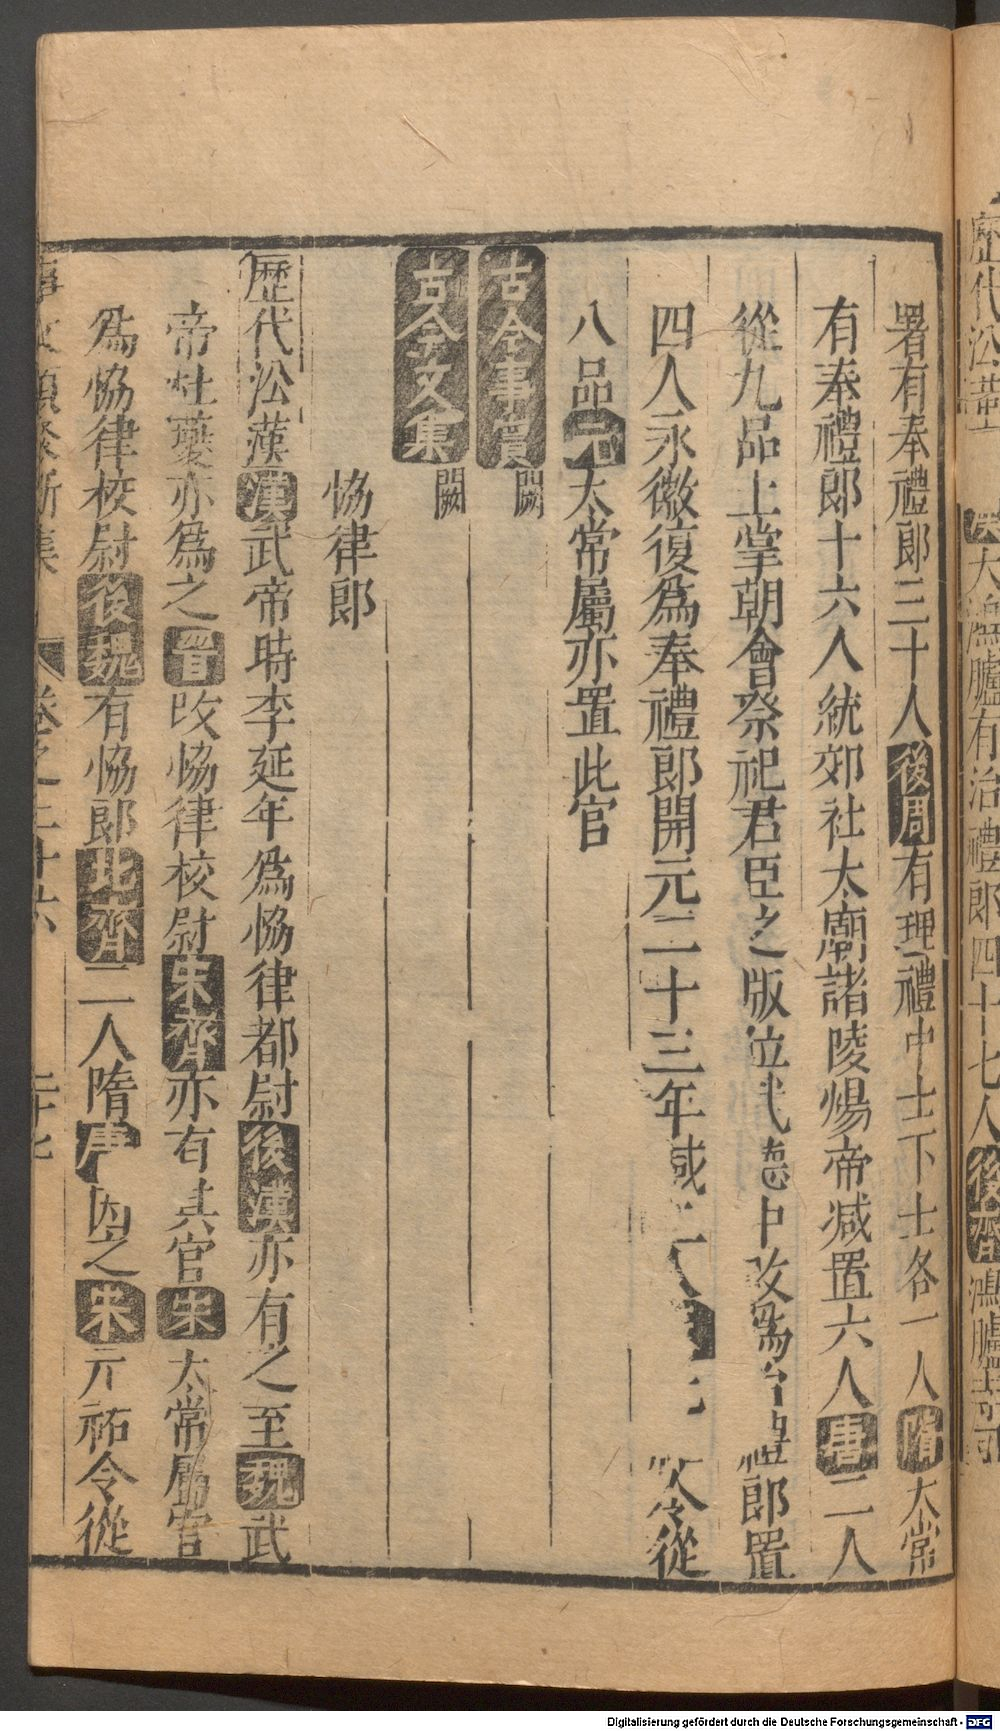 歷代沿革
宋大鴻臚有治禮郎四十七人後齊鴻臚寺司
署有奉禮郎三十人後周有理禮中士下士各一人隋太常
有奉禮郎十六人統郊社太廟諸陵煬帝减置六人唐二人
從九品上掌朝會祭祀君臣之版位武德中改爲治禮郎置
四人永徽復爲奉禮郎開元二十三年减二人 從
八品元太常屬亦置此官
古今事實 闕
古今文集 闕
恊律郎
歷代沿革漢武帝時李延年爲恊律都尉後漢亦有之至魏武
帝杜夔亦爲之晉改恊律校尉宋齊亦有其官宋太常屬官
爲恊律校尉後魏有恊郎北齊二人隋唐因之宋元祐令從
事文類聚新集 卷之二十六 二十七
Digitalisierung gefördert durch die Deutsche Forschungsgemeinschaft - DFG